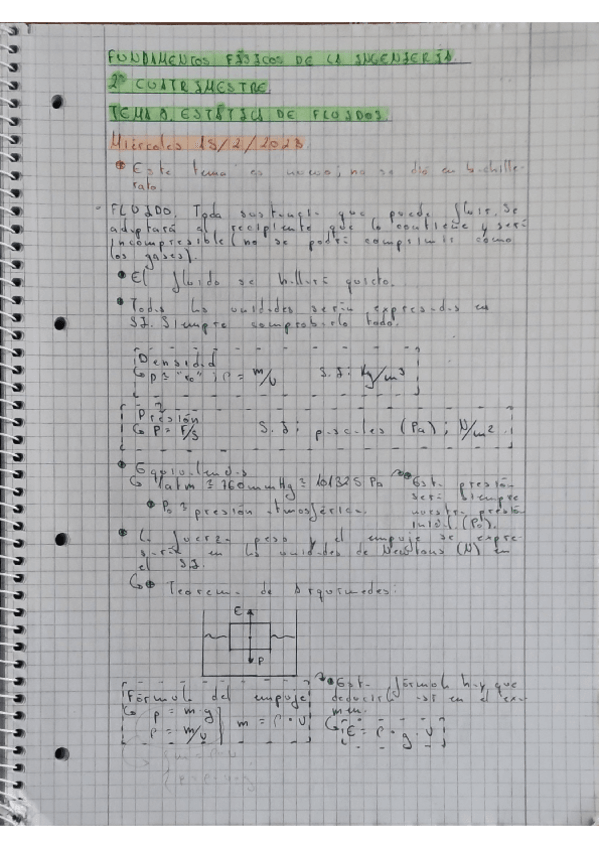 FUNDAMENTOS FÍSICOS DE LA INGENIERÍA.
2º CUATRIMESTRE.
TEMA 8. ESTÁTICA DE FLUIDOS.
Miércoles 15/2/2023
Este tema es nuevo; no se dió en bachille-
rato.
- FLUIDO. Toda sustancia que puede fluir. Se
adaptará al recipiente que lo contiene y será
incompresible (no se podrá comprimir como
los gases).
El fluido se hallará quieto.
Todas las unidades serán expresadas en
SI. Siempre comprobarlo todo.
Densidad
ρ ≡ "ro" ; ρ = m/V S.I: Kg/m³
Presión
P = F/S S.I: pascales (Pa) ; N/m²
Equivalencias
1atm ≡ 760mmHg ≡ 101325 Pa
Esta presión
será siempre
nuestra presión
inicial (P₀).
P₀ ≡ presión atmosférica.
La fuerza peso y el empuje se expre-
sarán en las unidades de Newtons (N) en
el SI.
Teorema de Arquímedes:
E
P
Fórmula del empuje
p = m·g
ρ = m/V
m = ρ·V
Esta fórmula hay que
deducirla así en el exa-
men.
E = ρ·g·V